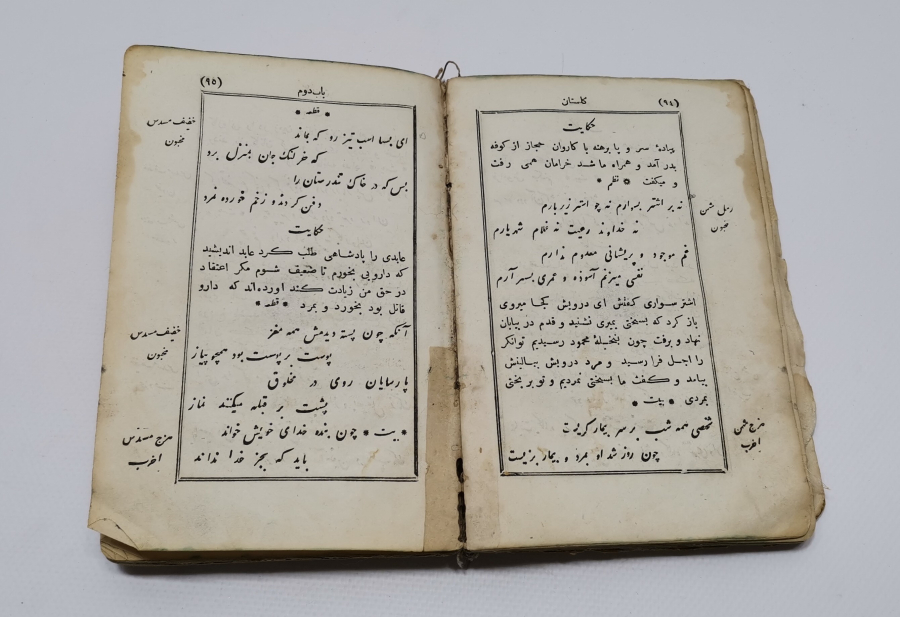 (٩٤)
گلستان
حکایت
پیادهٔ سر و پا برهنه با کاروان حجاز از کوفه
بدر آمد و همراه ما شد خرامان همی رفت
و میگفت * نظم *
نه بر اشتر سوارم نه چو اشتر زیر بارم
نه خداوند رعیت نه غلام شهریارم
غم موجود و پریشانی معدوم ندارم
نفسی میزنم آسوده و عمری بسر آرم
اشتر سواری گفتش ای درویش کجا میروی
باز گرد که بسختی بمیری نشنید و قدم در بیابان
نهاد و برفت چون بنخیلهٔ محمود رسیدیم توانگر
را اجل فرا رسید و مرد درویش ببالینش
بیامد و گفت ما بسختی نمردیم و تو بر بختی
بمردی * بیت *
شخصی همه شب بر سر بیمار گریست
چون روز شد او بمرد و بیمار بزیست
رمل مثمن
مخبون
هزج مثمن
اخرب
(٩٥)
باب دوم
* قطعه *
ای بسا اسب تیز رو که بماند
که خر لنگ جان بمنزل برد
بس که در خاک تندرستان را
دفن کردند و زخم خورده نمرد
حکایت
عابدی را پادشاهی طلب کرد عابد اندیشید
که دارویی بخورم تا ضعیف شوم مگر اعتقاد
در حق من زیادت کند آورده اند که دارو
قاتل بود بخورد و بمرد * قطعه *
آنکه چون پسته دیدمش همه مغز
پوست بر پوست بود همچو پیاز
پارسایان روی در مخلوق
پشت بر قبله میکنند نماز
* بیت * چون بنده خدای خویش خواند
باید که بجز خدا نداند
خفیف مسدس
مخبون
خفیف مسدس
مخبون
هزج مسدس
اخرب